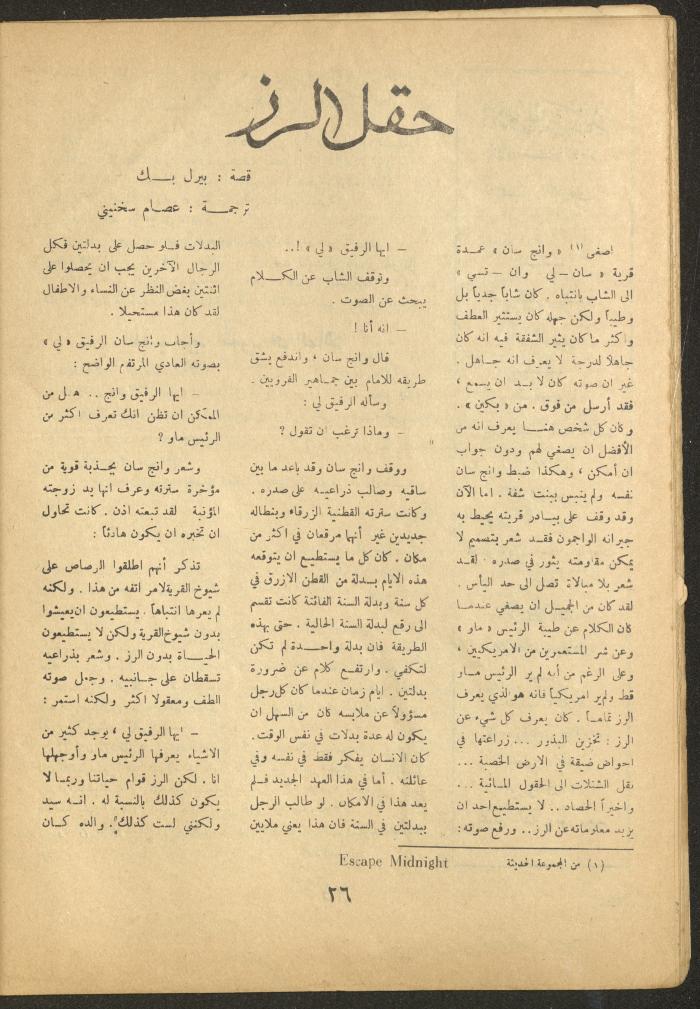 حقل الرز
قصة : بيرل بــك
ترجمــة : عصام سخنيني
اصغى (١) « وانج سان » عمــدة
قرية « سان – لي وان – تسي »
الى الشاب بانتباه . كان شاباً جدياً بل
وطيباً ولكن جهله كان يستثير العطف
واكثر ما كان يثير الشفقة فيه انه كان
جاهلا لدرجة لا يعرف انه جاهـل .
غير ان صوته كان لا بـد ان يسمع ،
فقد أرسل من فوق . من « بكين » .
وكان كل شخص هنــا يعرف انه من
الأفضل ان يصغي لهم ودون جواب
ان أمكن ، وهكذا ضبط وانج سان
نفسه ولم ينبس ببنت شفة . اما الآن
وقد وقف على بيــادر قريته يحيط به
جيرانه الواجمون فقـد شعر بتصميم لا
يمكن مقاومته يثور في صدره . لقـد
شعر بلا مبالاة تصل الى حد اليأس .
لقد كان من الجميـل ان يصغي عندمـا
كان الكلام عن طيبة الرئيس « ماو »
وعن شر المستعمرين من الامريكيين ،
وعلى الرغم من أنه لم ير الرئيس مـاو
قط ولم ير امريكياً فانه هو الذي يعرف
الرز تمامـاً . كان يعرف كل شيء عن
الرز : تخزين البذور ... زراعتها في
احواض ضيقة في الارض الخصبة ...
نقل الشتلات الى الحقول المـائية ...
واخيراً الحصاد .. لا يستطيع احد ان
يزيد معلوماته عن الرز .. ورفع صوته :
– ايها الرفيق « لي » !..
وتوقف الشاب عن الكــلام
يبحث عن الصوت .
– انه أنا !
قال وانج سان ، واندفع يشق
طريقه للامام بين جماهير القرويين .
وسأله الرفيق لي :
– وماذا ترغب ان تقول ؟
ووقف وانج سان وقد باعد ما بين
ساقيه وصالب ذراعيـه على صدره .
وكانت سترته القطنية الزرقاء وبنطاله
جديدين غير أنها مرقعان في اكثر من
مكان . كان كل ما يستطيـع ان يتوقعه
هذه الايام بـدلة من القطن الازرق في
كل سنة وبدلة السنة الفائتة كانت تقسم
الى رقع لبدلة السنة الحالية . حتى بهذه
الطريقة فان بدلة واحــدة لم تكن
لتكفي . وارتفـع كلام عن ضرورة
بدلتين . ايام زمان عندما كان كل رجل
مسؤولاً عن ملابسه كان من السهل ان
يكون له عدة بدلات في نفس الوقت .
كان الانسان يفكر فقط في نفسه وفي
عائلته . أما في هذا العهد الجديد فـلم
يعد هذا في الامكان . لو طالب الرجل
ببدلتين في السنة فان هذا يعني ملايين
البدلات فـلو حصل على بدلتين فكل
الرجال الآخرين يجب ان يحصلوا على
اثنتين بغض النظر عن النساء والاطفال
لقد كان هذا مستحيلا .
وأجاب وانج سان الرفيق « لي »
بصوته العادي المرتفع الواضح :
– ايها الرفيق وانج .. هـل من
الممكن ان تظن انك تعرف اكثر من
الرئيس ماو ؟
وشعر وانج سان بجـذبة قوية من
مؤخرة سترته وعرف انها يد زوجته
المؤنبة لقد تبعته اذن . كانت تحاول
ان تخبره ان يكون هادئاً :
تذكر أنهم اطلقوا الرصاص على
شيوخ القرية لامر اتفه من هذا . ولكنه
لم يعرها انتباهاً . يستطيعون ان يعيشوا
بدون شيوخ القرية ولكن لا يستطيعون
الحيــاة بدون الرز . وشعر بذراعيه
تسقطان على جـانبيه . وجعل صوته
الطف ومعقولا اكثر ولكنه استمر :
– ايها الرفيق لي ، يوجد كثير من
الاشياء يعرفها الرئيس ماو وأوجهلها
انا . لكن الرز قوام حياتنا وربمـا لا
يكون كذلك بالنسبة له . انــه سيد
ولكنني لست كذلك . والده كــان
(١) من المجموعة الحديثة Escape Midnight
٢٦